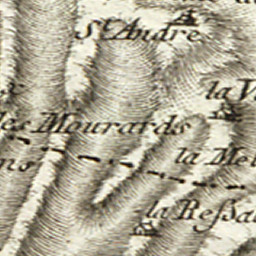 St. André
la V
les Mourards
la Mel
ns
la Ressa